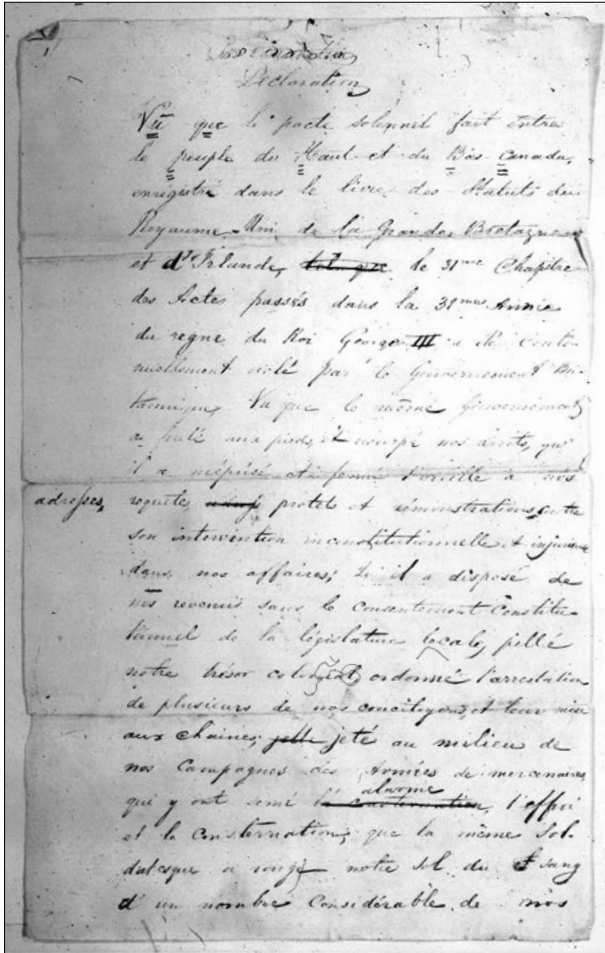 Déclaration
Vu que le pacte solennel fait entre
le peuple du Haut et du Bas Canada,
enregistré dans le livre des Statuts du
Royaume-Uni de la Grande Bretagne
et d'Irlande, tel que le 31me Chapitre
des Actes passés dans la 31me Année
du regne du Roi George III a été conti-
nuellement violé par le Gouvernement Bri-
tannique, Vu que le même Gouvernement
a foulé aux pieds et usurpé nos droits, qu'
il a méprisé et fermé l'oreille à nos
adresses,
requetes protets et rémonstrations contre
son intervention inconstitutionnelle et injurieuse
dans nos affaires; qu'il a disposé de
nos revenus sans le consentement Constitu-
tionnel de la législature locale, pillé
notre trésor colonial ordonné l'arrestation
de plusieurs de nos concitoyens, et leur mise
aux chaines; jeté au milieu de
nos Campagnes des Armées de mercenaires
alarme
qui y ont semé la consternation, l'effroi
et la Consternation; que la même Sol-
datesque a rougi notre sol du sang
d'un nombre Considérable de nos